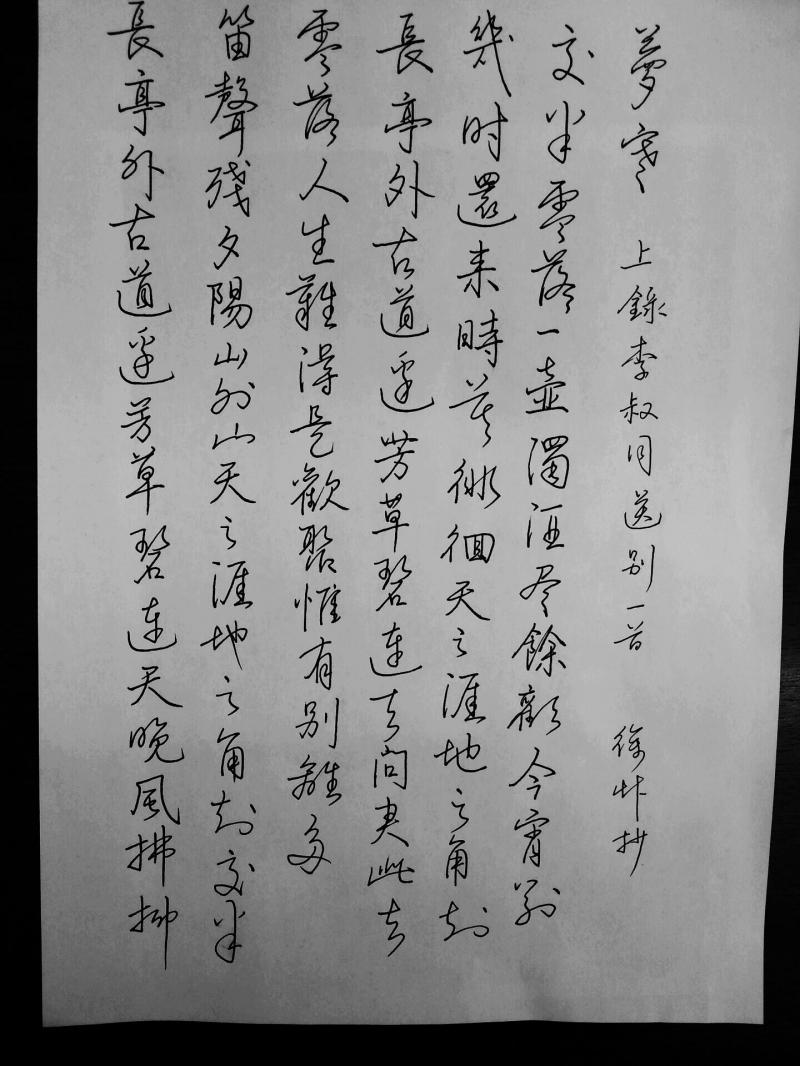 長亭外古道邊芳草碧連天晚風拂柳
笛聲殘夕陽山外山天之涯地之角知交半
零落人生難得是歡聚惟有别離多
長亭外古道邊芳草碧連天問君此去
幾时還來時莫徘徊天之涯地之角知
交半零落一壺濁酒尽餘歡今宵别
夢寒 上錄李叔同送别一首 徐 抄